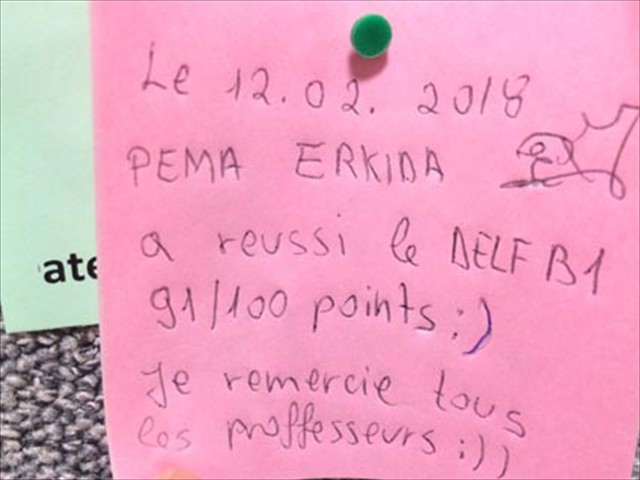 Le 12.02.2018
PEMA ERKIDA
a reussi le DELF B1
91/100 points :)
Je remercie tous
les proffesseurs :))
ate